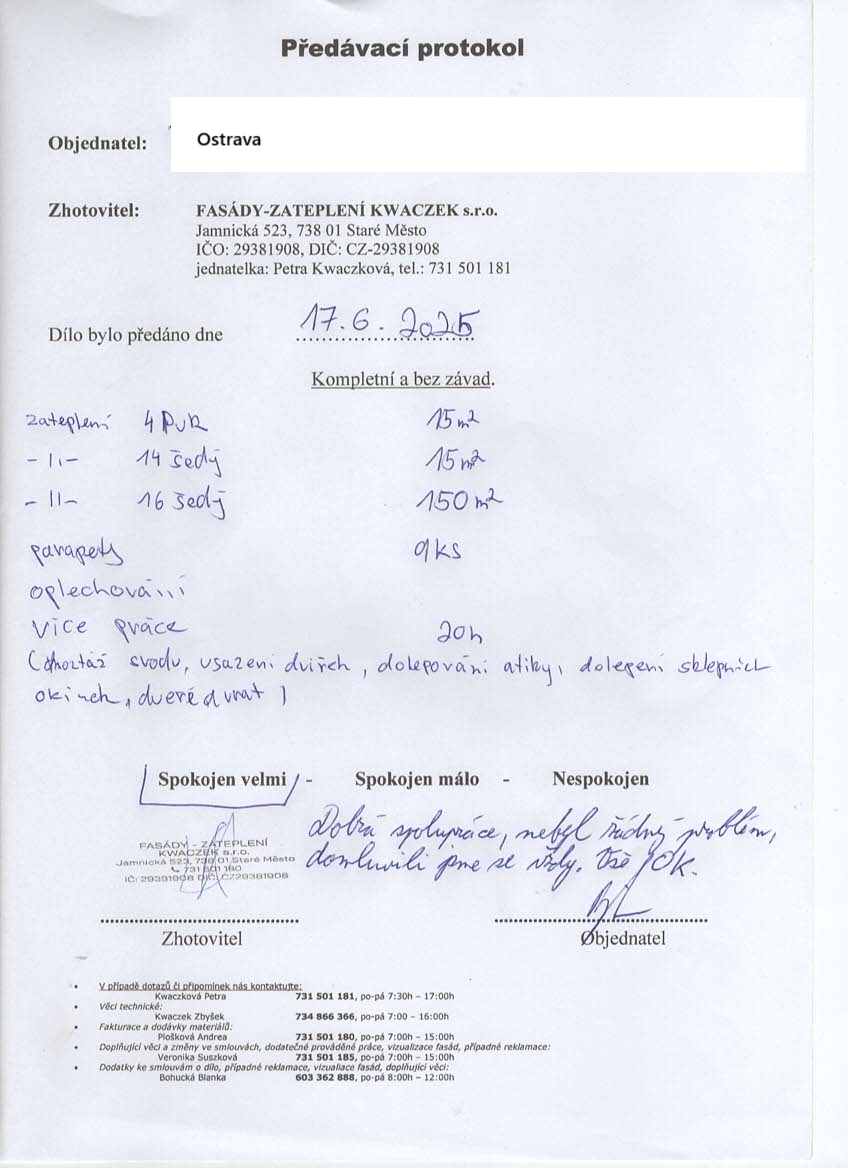 Předávací protokol
Objednatel: Ostrava
Zhotovitel: FASÁDY-ZATEPLENÍ KWACZEK s.r.o.
Jamnická 523, 738 01 Staré Město
IČO: 29381908, DIČ: CZ-29381908
jednatelka: Petra Kwaczková, tel.: 731 501 181
Dílo bylo předáno dne 17.6.2025
Kompletní a bez závad.
zateplení 4 PUR 15 m²
- 11 - 14 šedý 15 m²
- 11 - 16 šedý 150 m²
parapety 9 ks
oplechování
více práce 20h
svodu, usazení dvířek, dolepování atiky, dolepení sklepních
dveře
Spokojen velmi - Spokojen málo - Nespokojen
Dobrá spolupráce, nebyl žádný problém,
domluvili jsme se vždy. Vše OK.
FASÁDY - ZATEPLENÍ
KWACZEK s.r.o.
Jamnická 523, 738 01 Staré Město
731 501 180
IČ: 29381908 DIČ: CZ29381908
Zhotovitel Objednatel
V případě dotazů či připomínek nás kontaktujte:
Kwaczková Petra 731 501 181, po-pá 7:30h – 17:00h
Věci technické:
Kwaczek Zbyšek 734 866 366, po-pá 7:00 – 16:00h
Fakturace a dodávky materiálů:
Plošková Andrea 731 501 180, po-pá 7:00h – 15:00h
Doplňující věci a změny ve smlouvách, dodatečné prováděné práce, vizualizace fasád, případné reklamace:
Veronika Suszková 731 501 185, po-pá 7:00h – 15:00h
Dodatky ke smlouvám o dílo, případné reklamace, vizualiace fasád, doplňující věci:
Bohucká Blanka 603 362 888, po-pá 8:00h – 12:00h